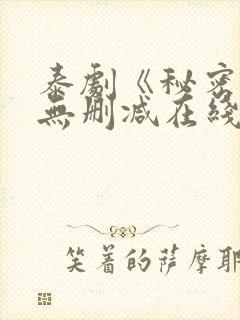 泰劇《秘密
無刪減在綫
笑着的萨摩耶